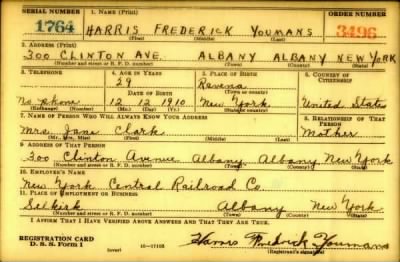 SERIAL NUMBER 1. NAME (Print) ORDER NUMBER
1764 HARRIS FREDERICK YOUMANS 3496
(First) (Middle) (Last)
2. ADDRESS (Print)
300 CLINTON AVE. ALBANY ALBANY NEW YORK
(Number and street or R. F. D. number) (Town) (County) (State)
3. TELEPHONE 4. AGE IN YEARS 5. PLACE OF BIRTH 6. COUNTRY OF CITIZENSHIP
29 Ravena
DATE OF BIRTH (Town or county)
No phone 12 12 1910 New York United States
(Exchange) (Number) (Mo.) (Day) (Yr.) (State or country)
7. NAME OF PERSON WHO WILL ALWAYS KNOW YOUR ADDRESS 8. RELATIONSHIP OF THAT PERSON
Mrs. Jane Clark Mother
(Mr., Mrs., Miss) (First) (Middle) (Last)
9. ADDRESS OF THAT PERSON
300 Clinton Avenue Albany Albany New York
(Number and street or R. F. D. number) (Town) (County) (State)
10. EMPLOYER'S NAME
New York Central Railroad Co.
11. PLACE OF EMPLOYMENT OR BUSINESS
Selkirk Albany New York
(Number and street or R. F. D. number) (Town) (County) (State)
I AFFIRM THAT I HAVE VERIFIED ABOVE ANSWERS AND THAT THEY ARE TRUE.
REGISTRATION CARD
D. S. S. Form 1 (over) 16—17105 Harris Fredrick Youmans
(Registrant's signature)